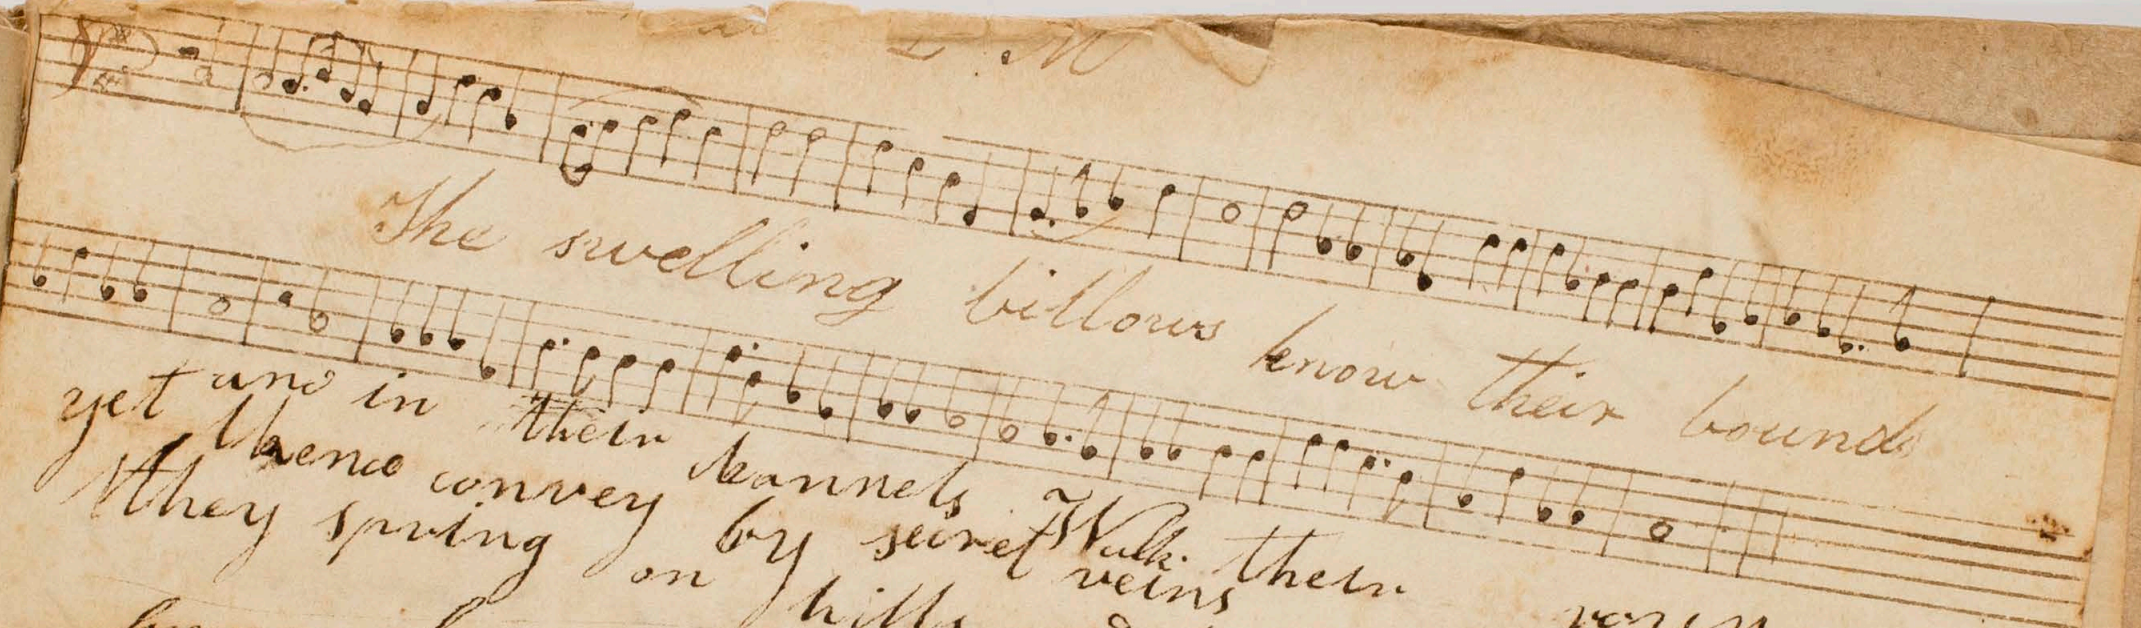 L. M
The swelling billows know their bounds
and in their channels Walk their
yet thence convey by secret veins
they spring on hills